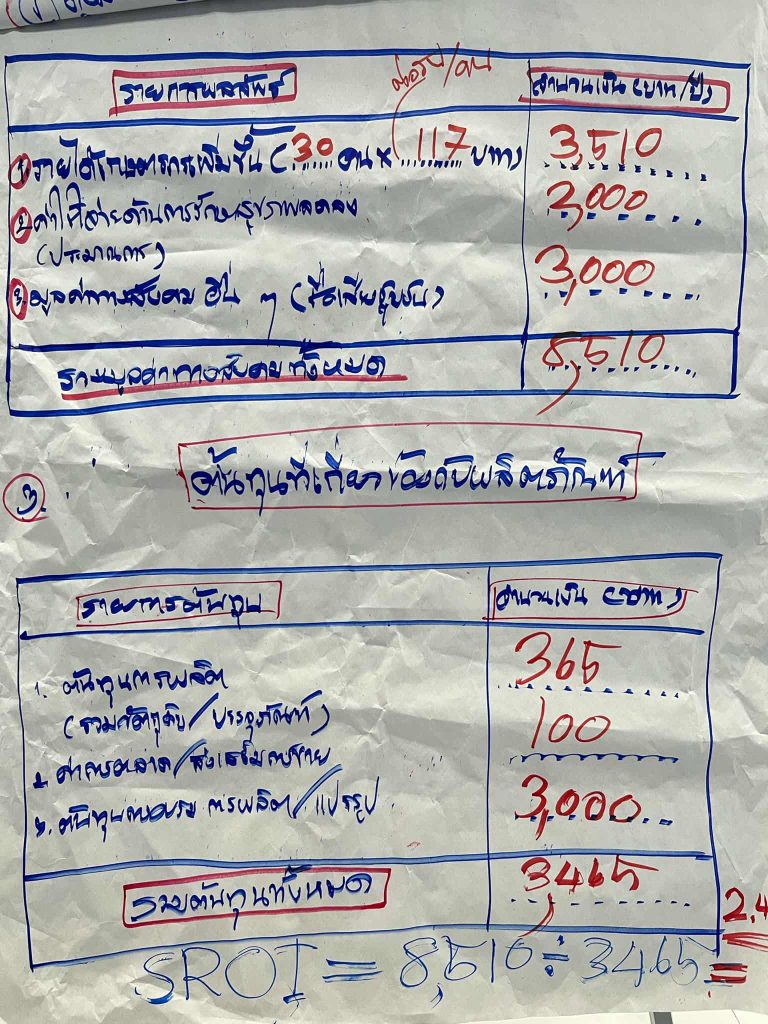 รายการผลลัพธ์
จำนวนเงิน (บาท/ปี)
ต่อวัน/คน
1 รายได้เกษตรกรเพิ่มขึ้น (30 คน x 117 บาท)
3,510
2 ค่าใช้จ่ายด้านการรักษาสุขภาพลดลง
2,000
(ประมาณการ)
3 มูลค่าทางสังคม อื่น ๆ
3,000
รวมมูลค่าทางสังคมทั้งหมด
8,510
3.
ต้นทุนที่เกี่ยวข้องกับผลิตภัณฑ์
รายการต้นทุน
จำนวนเงิน (บาท)
1. ต้นทุนการผลิต
365
(รวมวัตถุดิบ/บรรจุภัณฑ์)
100
2. ค่าการตลาด/ส่งเสริมการขาย
3. ต้นทุนการอบรม การผลิต/แปรรูป
3,000
รวมต้นทุนทั้งหมด
3465
2.4
SROI = 8,510 ÷ 3465 =